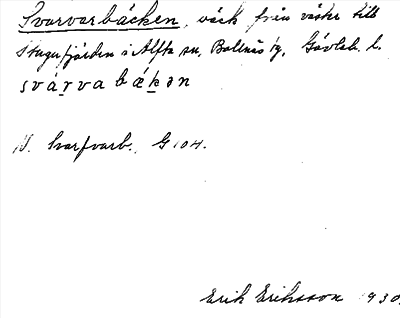 Svarvarbäcken, bäck från väster till
Stugufjärden i Alfta sn, Bollnäs tg, Gävleb. l.
svárvabäkən
N. Svarfvarb. G 104.
Erik Eriksson 1930.